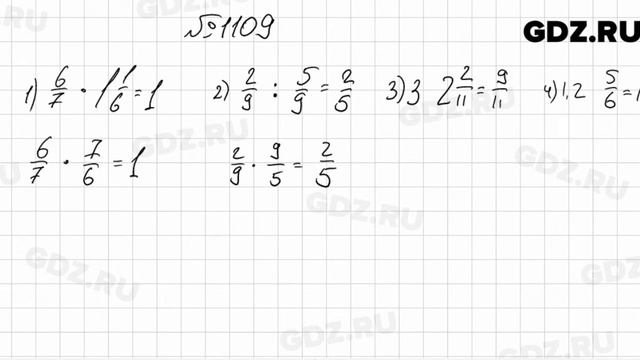 №1109
GDZ.RU
1) 6/7 · 1 1/6 = 1 2) 2/9 : 5/9 = 2/5 3) 3 2 2/11 = 9/11 4) 1,2 5/6 = 1
6/7 · 7/6 = 1 2/9 · 9/5 = 2/5
GDZ.RU
GDZ.RU
GDZ.RU
GDZ.RU
GDZ.RU
GDZ.RU
GDZ.RU